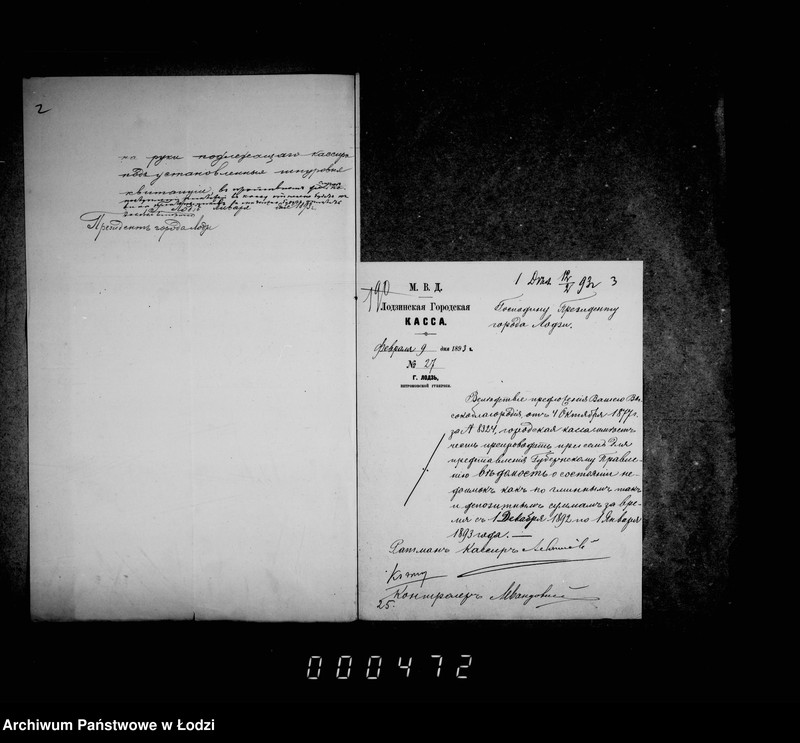 2
на руки подлежащаго кассира
подъ установленныя шнуровыя
квитанціи, въ
января дня 1893 г.
Президентъ города Лодзи
190
М. В. Д.
Лодзинская Городская
КАССА.
Февраля 9 дня 1893 г.
№ 27
Г. ЛОДЗЬ,
ПЕТРОКОВСКОЙ ГУБЕРНІИ.
1 Дѣл. 12/2 93 г 3
Господину Президенту
города Лодзи.
Вслѣдствіе предложенія Вашего Вы-
сокоблагородія, отъ 4 Октября 1877 г.
за № 8324, городская касса имѣетъ
честь препроводить при семъ для
представленія Губернскому Правле-
нію вѣдомость о состояніи не-
доимокъ какъ по главнымъ такъ
и депозитнымъ суммамъ за вре-
мя съ 1 Декабря 1892 по 1 Января
1893 года.
Ратманъ Кассиръ
Контролеръ
25.
000472
Archiwum Państwowe w Łodzi